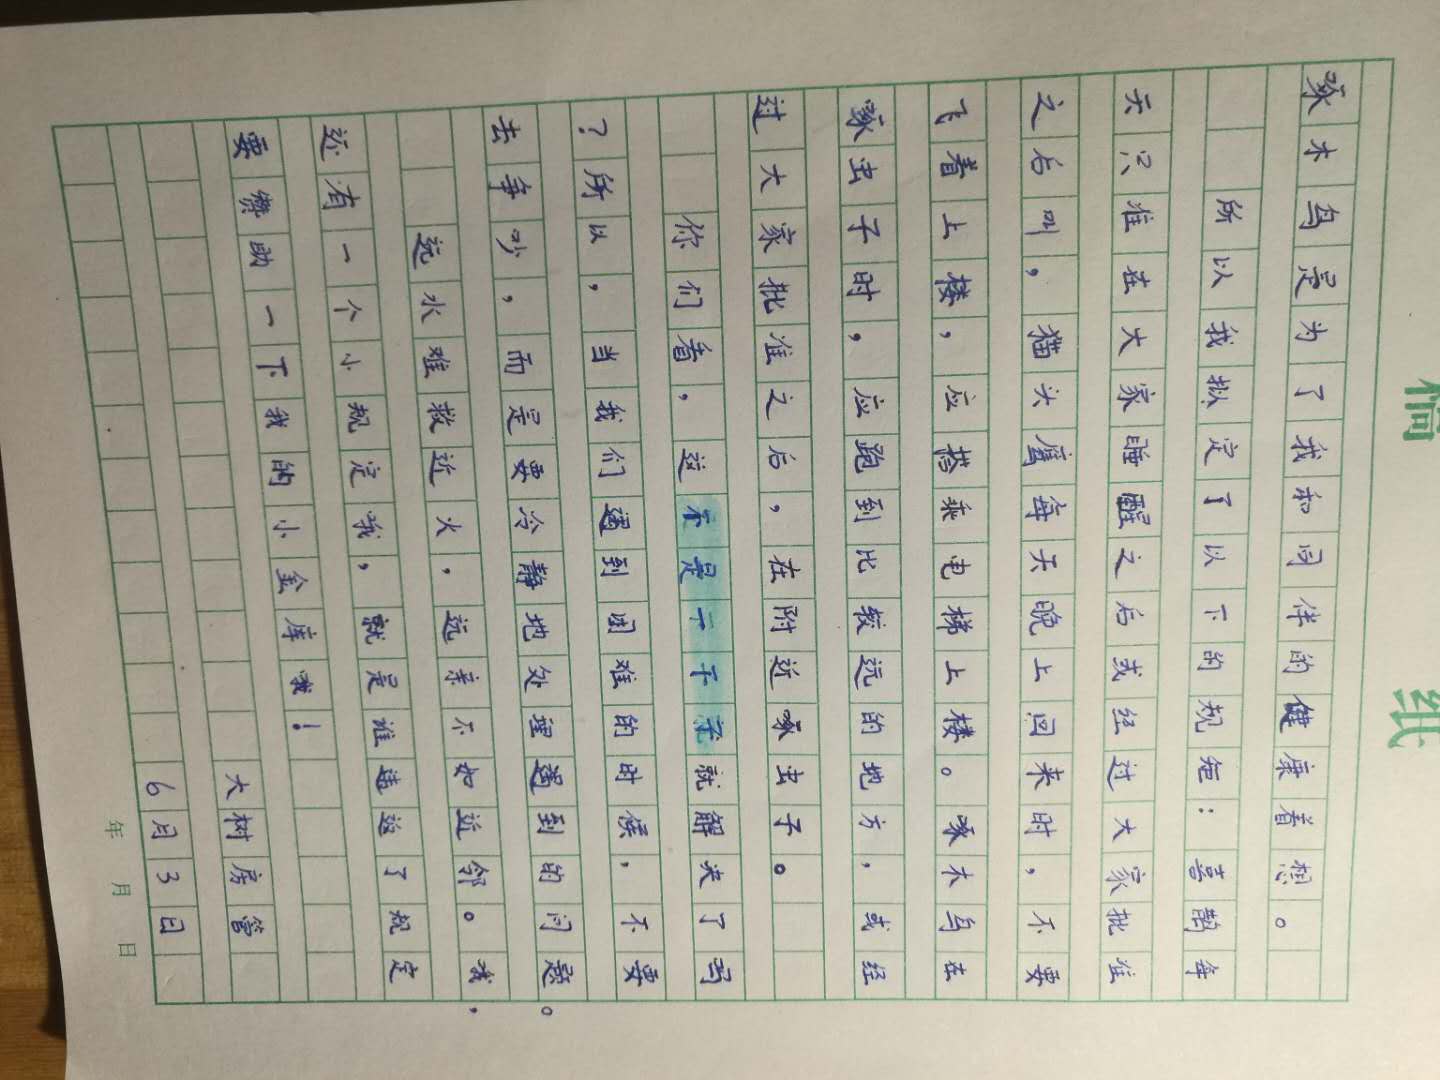 稿 纸
啄木鸟是为了我和同伴的健康着想。
所以我拟定了以下的规矩：喜鹊每
天只准在大家睡醒之后或经过大家批准
之后叫，猫头鹰每天晚上回来时，不要
飞着上楼，应搭乘电梯上楼。啄木鸟在
啄虫子时，应跑到比较远的地方，或经
过大家批准之后，在附近啄虫子。
你们看，这不是一下子就解决了吗
？所以，当我们遇到困难的时候，不要
去争吵，而是要冷静地处理遇到的问题。
远水难救近火，远亲不如近邻。哦，
还有一个小规定哦，就是谁违返了规定
要赞助一下我的小金库哦！
大树房管
6月3日
年 月 日